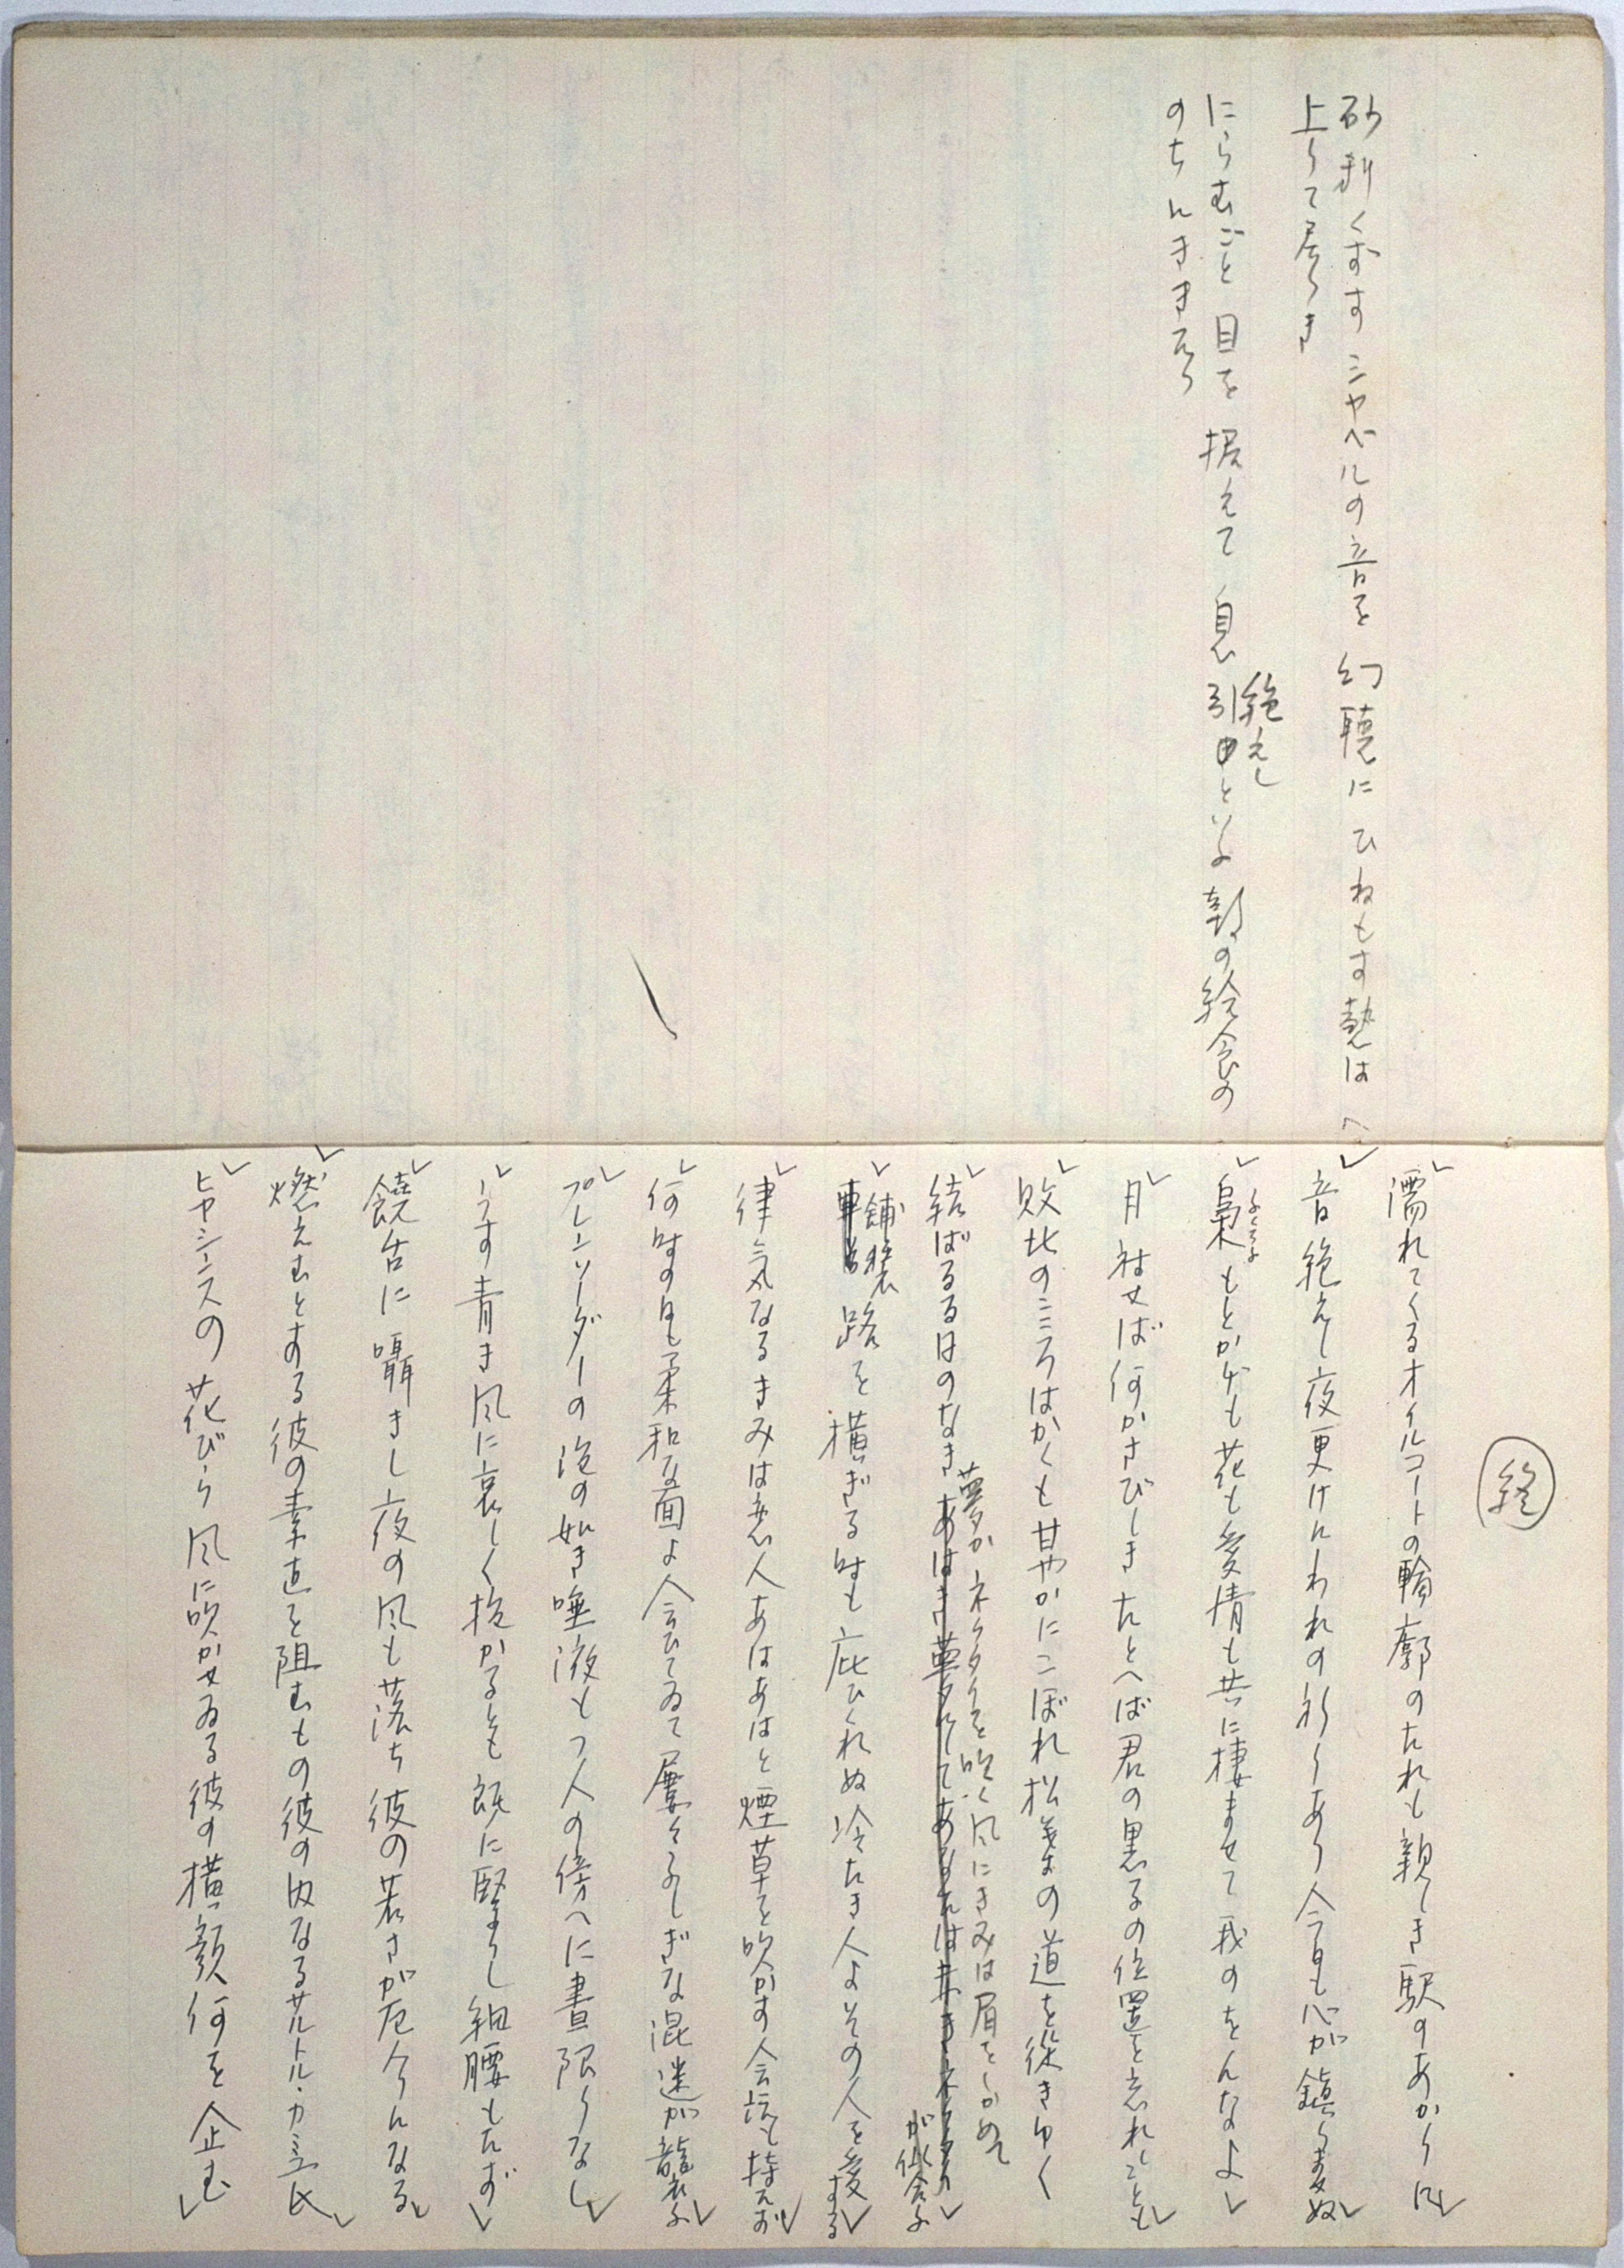 砂利くずすシャベルの音を幻聴にひねもす熱は
上りて居りき
にらむごと目を据えて息引
絶えし
といふ 朝の給食の
のちにききたり
終
濡れてくるオイルコートの輪廓のたれも親しき駅のあかりに
音絶えし夜更けにわれの祈りあり今日も心が鎮
梟もとかげも花も愛情も共に棲ませて我のをんなよ
ふくろふ
月祥せば何かさびしきたとへば君の黒
の位置を忘れしことも
敗北のこころはかくも甘やかにこぼれ松葉の道を
きゆく
結ばるる日のなき
夢か ネクタイを吹く風にきみは眉をしかめて
が似合ふ
舗装
路を横ぎる時も庇ひくれぬ冷たき人よその人を愛する
律気なるきみは恋人あはあはと煙草を吹かす会話も持たず
何時の日も柔和な面よ会ひてゐて屡々ふしぎな混迷が襲ふ
プレンソーダーの泡の如き唾液もつ人の傍へに昼限りなし
うす青き風に哀しく抱かるとも既に堅
りし細腰もたず
饒舌に囁きし夜の風も落ち彼の若さが
今になる
燃えむとする彼の素直を阻むもの彼の内なるサルトル・カミュ氏
ヒヤシンスの花びら風に吹かせゐる彼の横顔何を企む